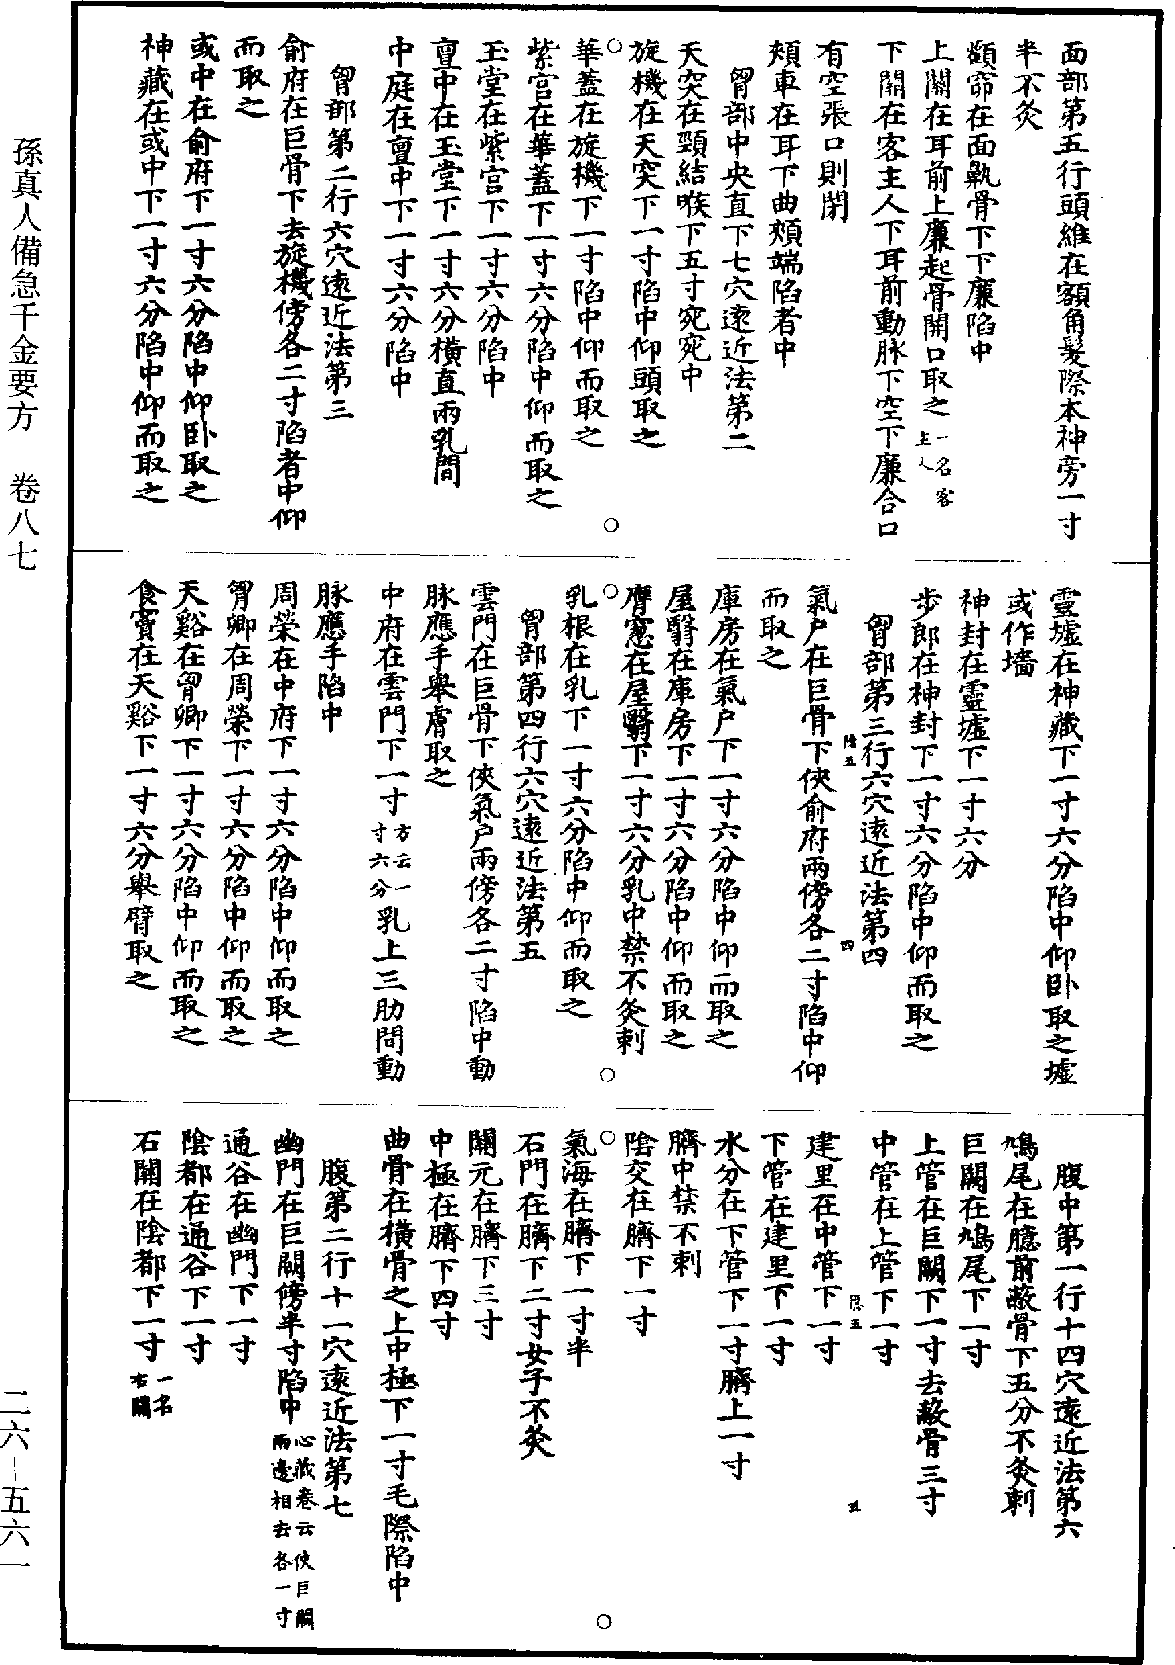 面部第五行頭維在額角髮際本神旁一寸
半不灸
顴窌在面鼽骨下下廉陷中
上關在耳前上廉起骨開口取之一名客主人
下關在客主人下耳前動脉下空下廉合口
有空張口則閉
頰車在耳下曲頰端陷者中
胷部中央直下七穴遠近法第二
天突在頸結喉下五寸宛宛中
旋機在天突下一寸陷中仰頭取之
華蓋在旋機下一寸陷中仰而取之
紫宫在華蓋下一寸六分陷中仰而取之
玉堂在紫宫下一寸六分陷中
亶中在玉堂下一寸六分橫直兩乳間
中庭在亶中下一寸六分陷中
胷部第二行六穴遠近法第三
俞府在巨骨下去旋機傍各二寸陷者中仰
而取之
或中在俞府下一寸六分陷中仰卧取之
神藏在或中下一寸六分陷中仰而取之
靈墟在神藏下一寸六分陷中仰卧取之墟
或作墻
神封在靈墟下一寸六分
步郎在神封下一寸六分陷中仰而取之
胷部第三行六穴遠近法第四
氣户在巨骨下俠俞府兩傍各二寸陷中仰
而取之
庫房在氣户下一寸六分陷中仰而取之
屋翳在庫房下一寸六分陷中仰而取之
膺窻在屋翳下一寸六分乳中禁不灸刺
乳根在乳下一寸六分陷中仰而取之
胷部第四行六穴遠近法第五
雲門在巨骨下俠氣户兩傍各二寸陷中動
脉應手舉膚取之
中府在雲門下一寸方云一寸六分乳上三肋間動
脉應手陷中
周榮在中府下一寸六分陷中仰而取之
胷鄉在周榮下一寸六分陷中仰而取之
天谿在胷鄉下一寸六分陷中仰而取之
食竇在天谿下一寸六分舉臂取之
腹中第一行十四穴遠近法第六
鳩尾在臆前蔽骨下五分不灸刺
巨闕在鳩尾下一寸
上管在巨闕下一寸去蔽骨三寸
中管在上管下一寸
建里在中管下一寸
下管在建里下一寸
水分在下管下一寸臍上一寸
臍中禁不刺
陰交在臍下一寸
氣海在臍下一寸半
石門在臍下二寸女子不灸
關元在臍下三寸
中極在臍下四寸
曲骨在橫骨之上中極下一寸毛際陷中
腹第二行十一穴遠近法第七
幽門在巨闕傍半寸陷中心藏卷云俠巨闕兩邊相去各一寸
通谷在幽門下一寸
陰都在通谷下一寸
石關在陰都下一寸一名右關
孫真人備急千金要方 卷八七
二六-五六一